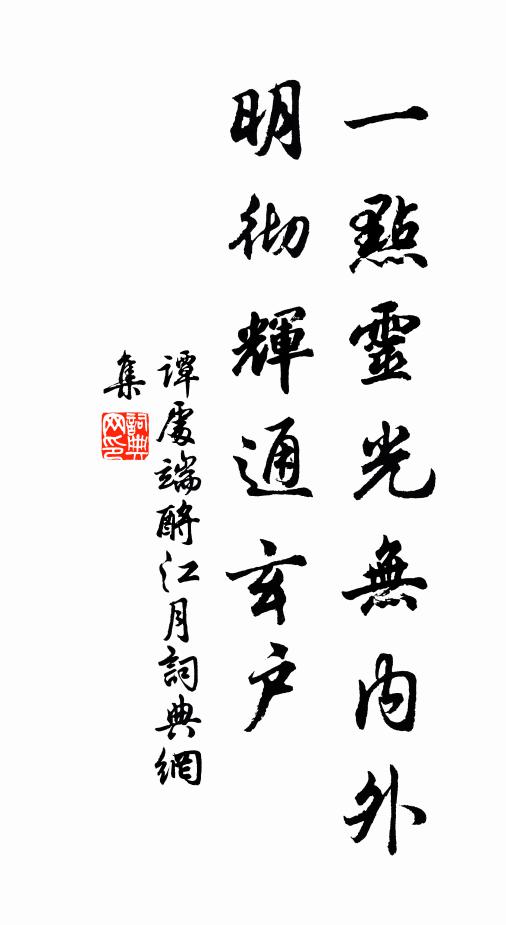 一點靈光無內外
明彻輝通玄户
譚處端酹江月詞典網
集
詞典網印